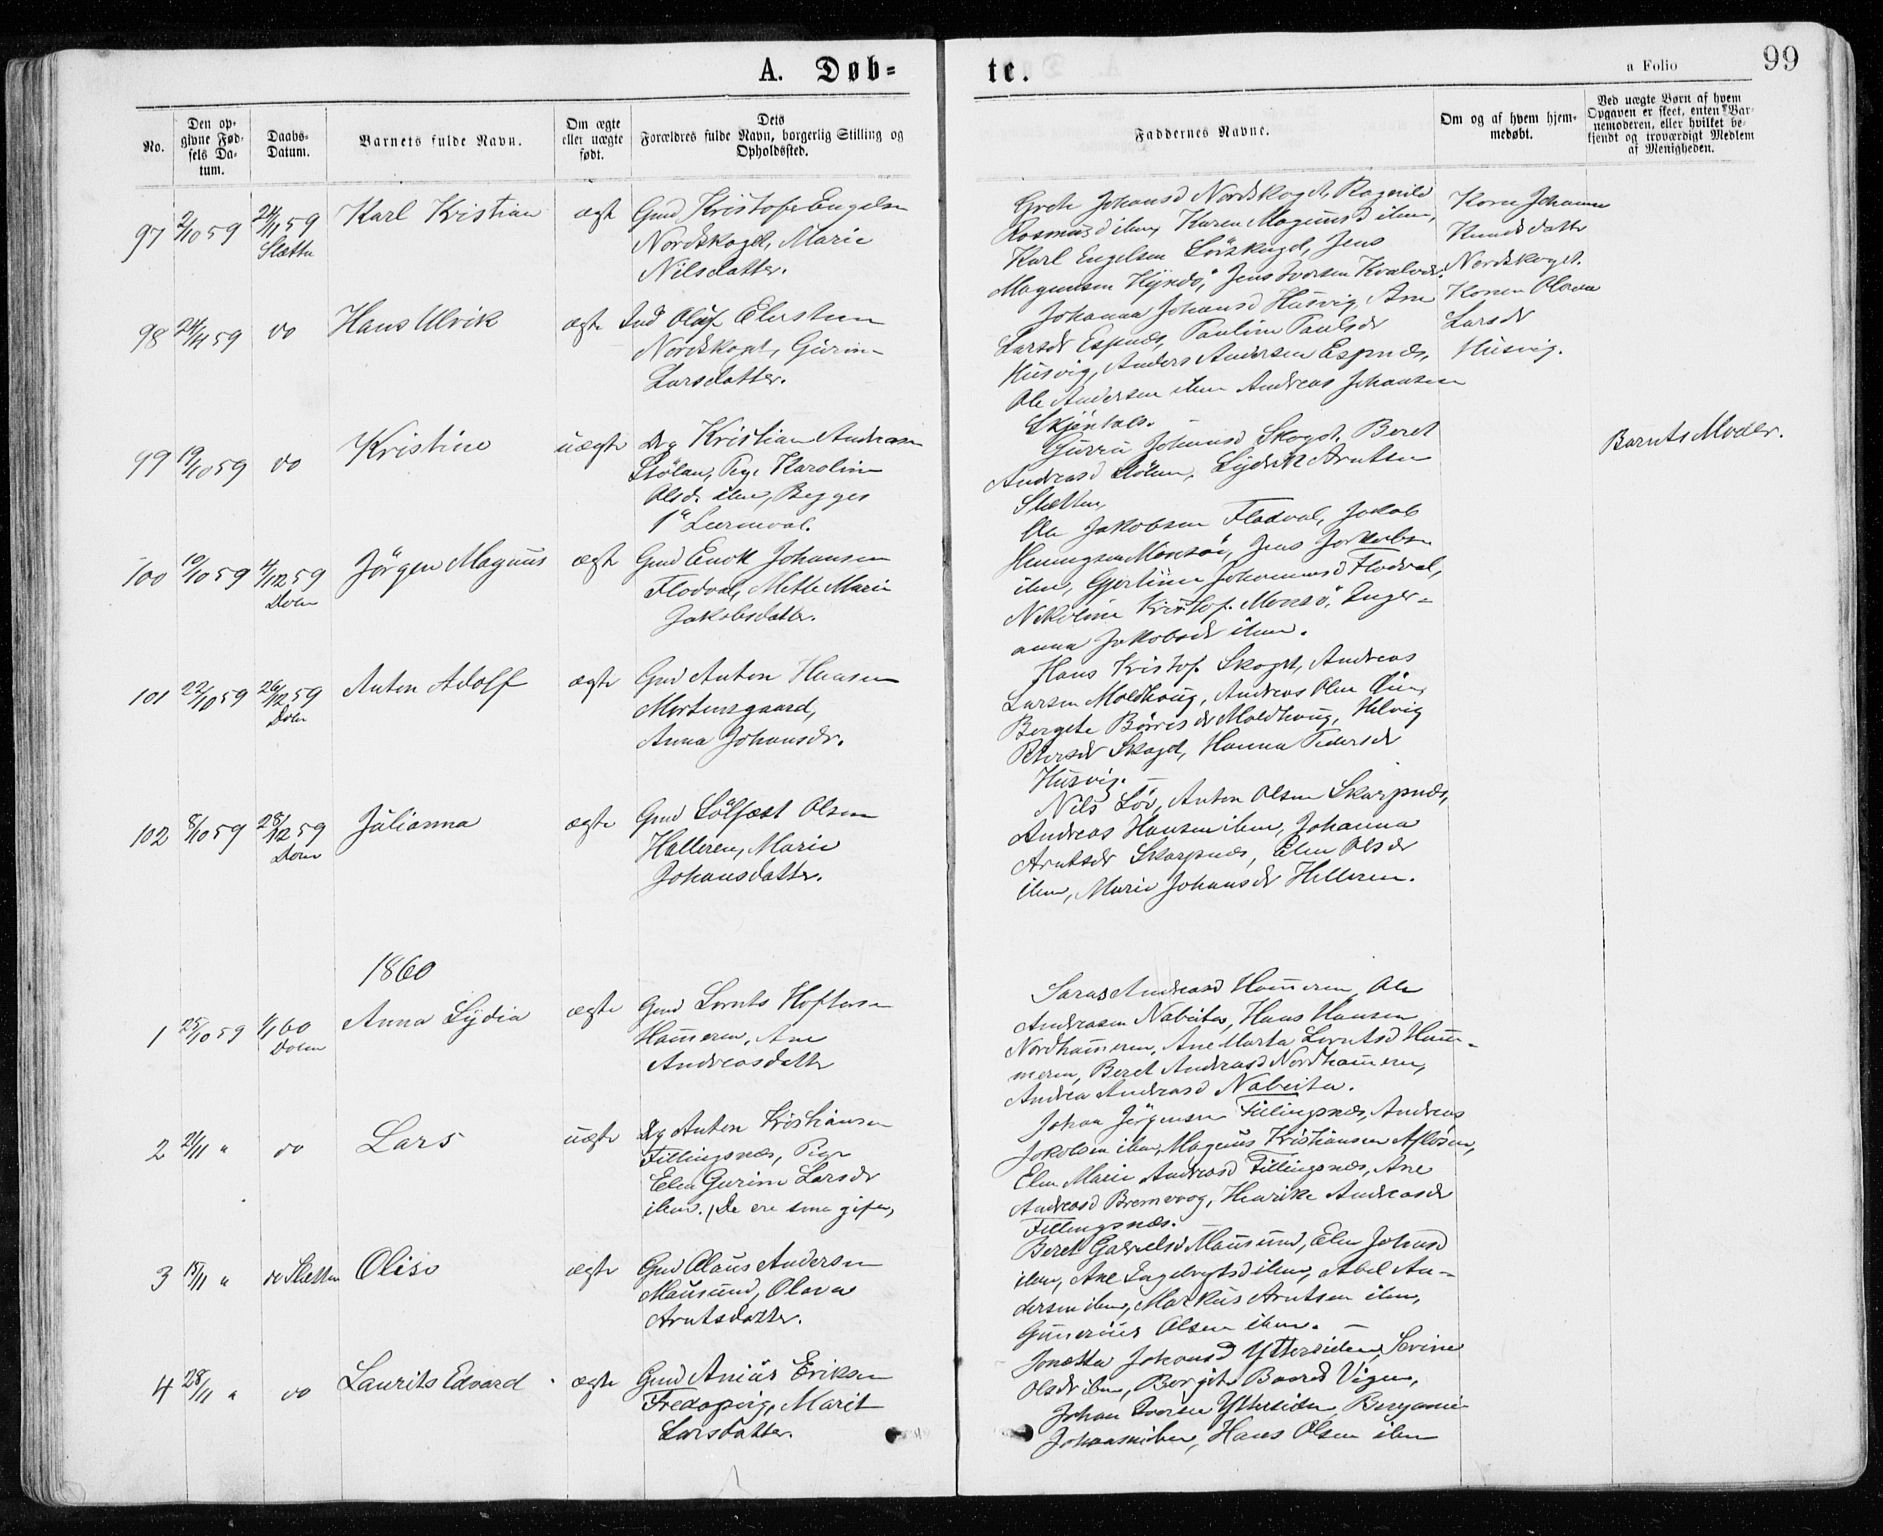 A. Døb=
te.
a Folio
99
No.
Den op-
givne Fød-
sels Da-
tum.
Daabs-
Datum.
Barnets fulde Navn.
Om ægte
eller uægte
født.
Dets
Forældres fulde Navn, borgerlig Stilling og
Opholdssted.
Faddernes Navne.
Om og af hvem hjem-
medøbt.
Ved uægte Børn af hvem
Opgaven er skeet, enten Bar-
nemoderen, eller hvilket be-
kjendt og troværdigt Medlem
af Menigheden.
97 2/10 59 24/11 59 Karl Kristian ægte Gmd Kristofer Engelsen
Slætten Nordskaget, Marie
Nilsdatter.
Grete Johansd Nordskaget, Ragnild
Rasmusd ibm, Karen Magnusd ibm,
Karl Engelsen Sørskaget, Jens
Magensen Hyndö, Jens Iversen
Kone Johanna
Knudsdatter
Nordskaget.
98 24/11 59 do Hans Ulvik ægte Ind Oluf Elersten
Nordskaget, Gurine
Larsdatter.
Johanna Johansd Husvig, Ane
Larsdr Espnæs, Pauline Paulsdr
Husvig, Anders Andersen Espnæs,
Ole Andersen ibm Andreas Johansen
Konen Olava
Larsdr
Husvig.
99 19/10 59 do Kristine uægte Ug Kristian Andreasen
Stölan, Pige Karoline
Olsd. ibm, Begges
1ste Leiermaal.
Gurru Johansd Skaget, Beret
Andreasd Stölan, Arntsen
Slætten,
Barnets Moder.
100 10/10 59 4/12 59 Jörgen Magnus ægte Gmd Enok Johansen
Dolm Flodval, Mette Marie
Jakobsdatter.
Ole Jakobsen Flodval, Jakob
Henningsen Monsö, Jens Jakobsen
ibm, Gjertine Johannesd Flodval,
Nikoline Kristof. Monsö, Inger-
anna Jakobsdr ibm.
101 22/10 59 26/12 59 Anton Adolf ægte Gmd Anton Hansen
Dolm Mortensgaard,
Anna Johansdr.
Hans Kristof. Skaget, Andreas
Larsen Moldhaug, Andreas Olsen
Bergete Børresdr Moldhaug, Helvig
Petersdr Skaget, Hanna Pedersdr
Husvig.
102 8/10 59 28/12 59 Julianna ægte Gmd Sölfæst Olsen
Dolm Helleren, Marie
Johansdatter.
Nils Anton Olsen Skarpnæs,
Andreas Hansen ibm, Johanna
Arntsdr Skarpnæs, Elen Olsdr
ibm, Marie Johansdr Helleren.
1860
1 25/10 59 1/1 60 Anna Lydia ægte Gmd Lornts Hoftersen
Dolm Hammeren, Ane
Andreasdatter
Andreasd Hammeren, Ole
Andreasen Nabeita, Hans Hansen
Nordhammeren, Ane Marta Lorntsd Ham-
meren, Beret Andreasd Nordhammeren,
Andrea Andreasd Nabeita.
2 21/11 " do Lars uægte Ug Anton Kristiansen
Fillingsnæs, Pige
Elen Gurine Larsdr
ibm. De ere gifte,
Johan Jörgensen Fillingsnæs, Andreas
Jakobsen ibm, Magnus Kristiansen
Elen Marie Andreasd Fillingsnæs, Ane
Andreasd Bremvog, Henrike Andreasdr
Fillingsnæs.
3 15/11 " do Slætten Oliso ægte Gmd Olaus Andersen
Mausund, Olava
Arntsdatter.
Beret Gabrielsd Mausund, Elen Johansd
ibm, Ane Ingebrigtsd ibm, Abel An-
dersen ibm, Markus Arntsen ibm,
Gunerius Olsen ibm.
4 28/11 " do Laurits Edvard ægte Gmd Anius Eriksen
Fredagvig, Marit
Larsdatter.
Jonetta Johansd Yttersiden, Sevine
Olsdr ibm, Bergit Baard Vigen,
Johan Iversen Yttersiden, Benjamin
Johansen ibm, Hans Olsen ibm